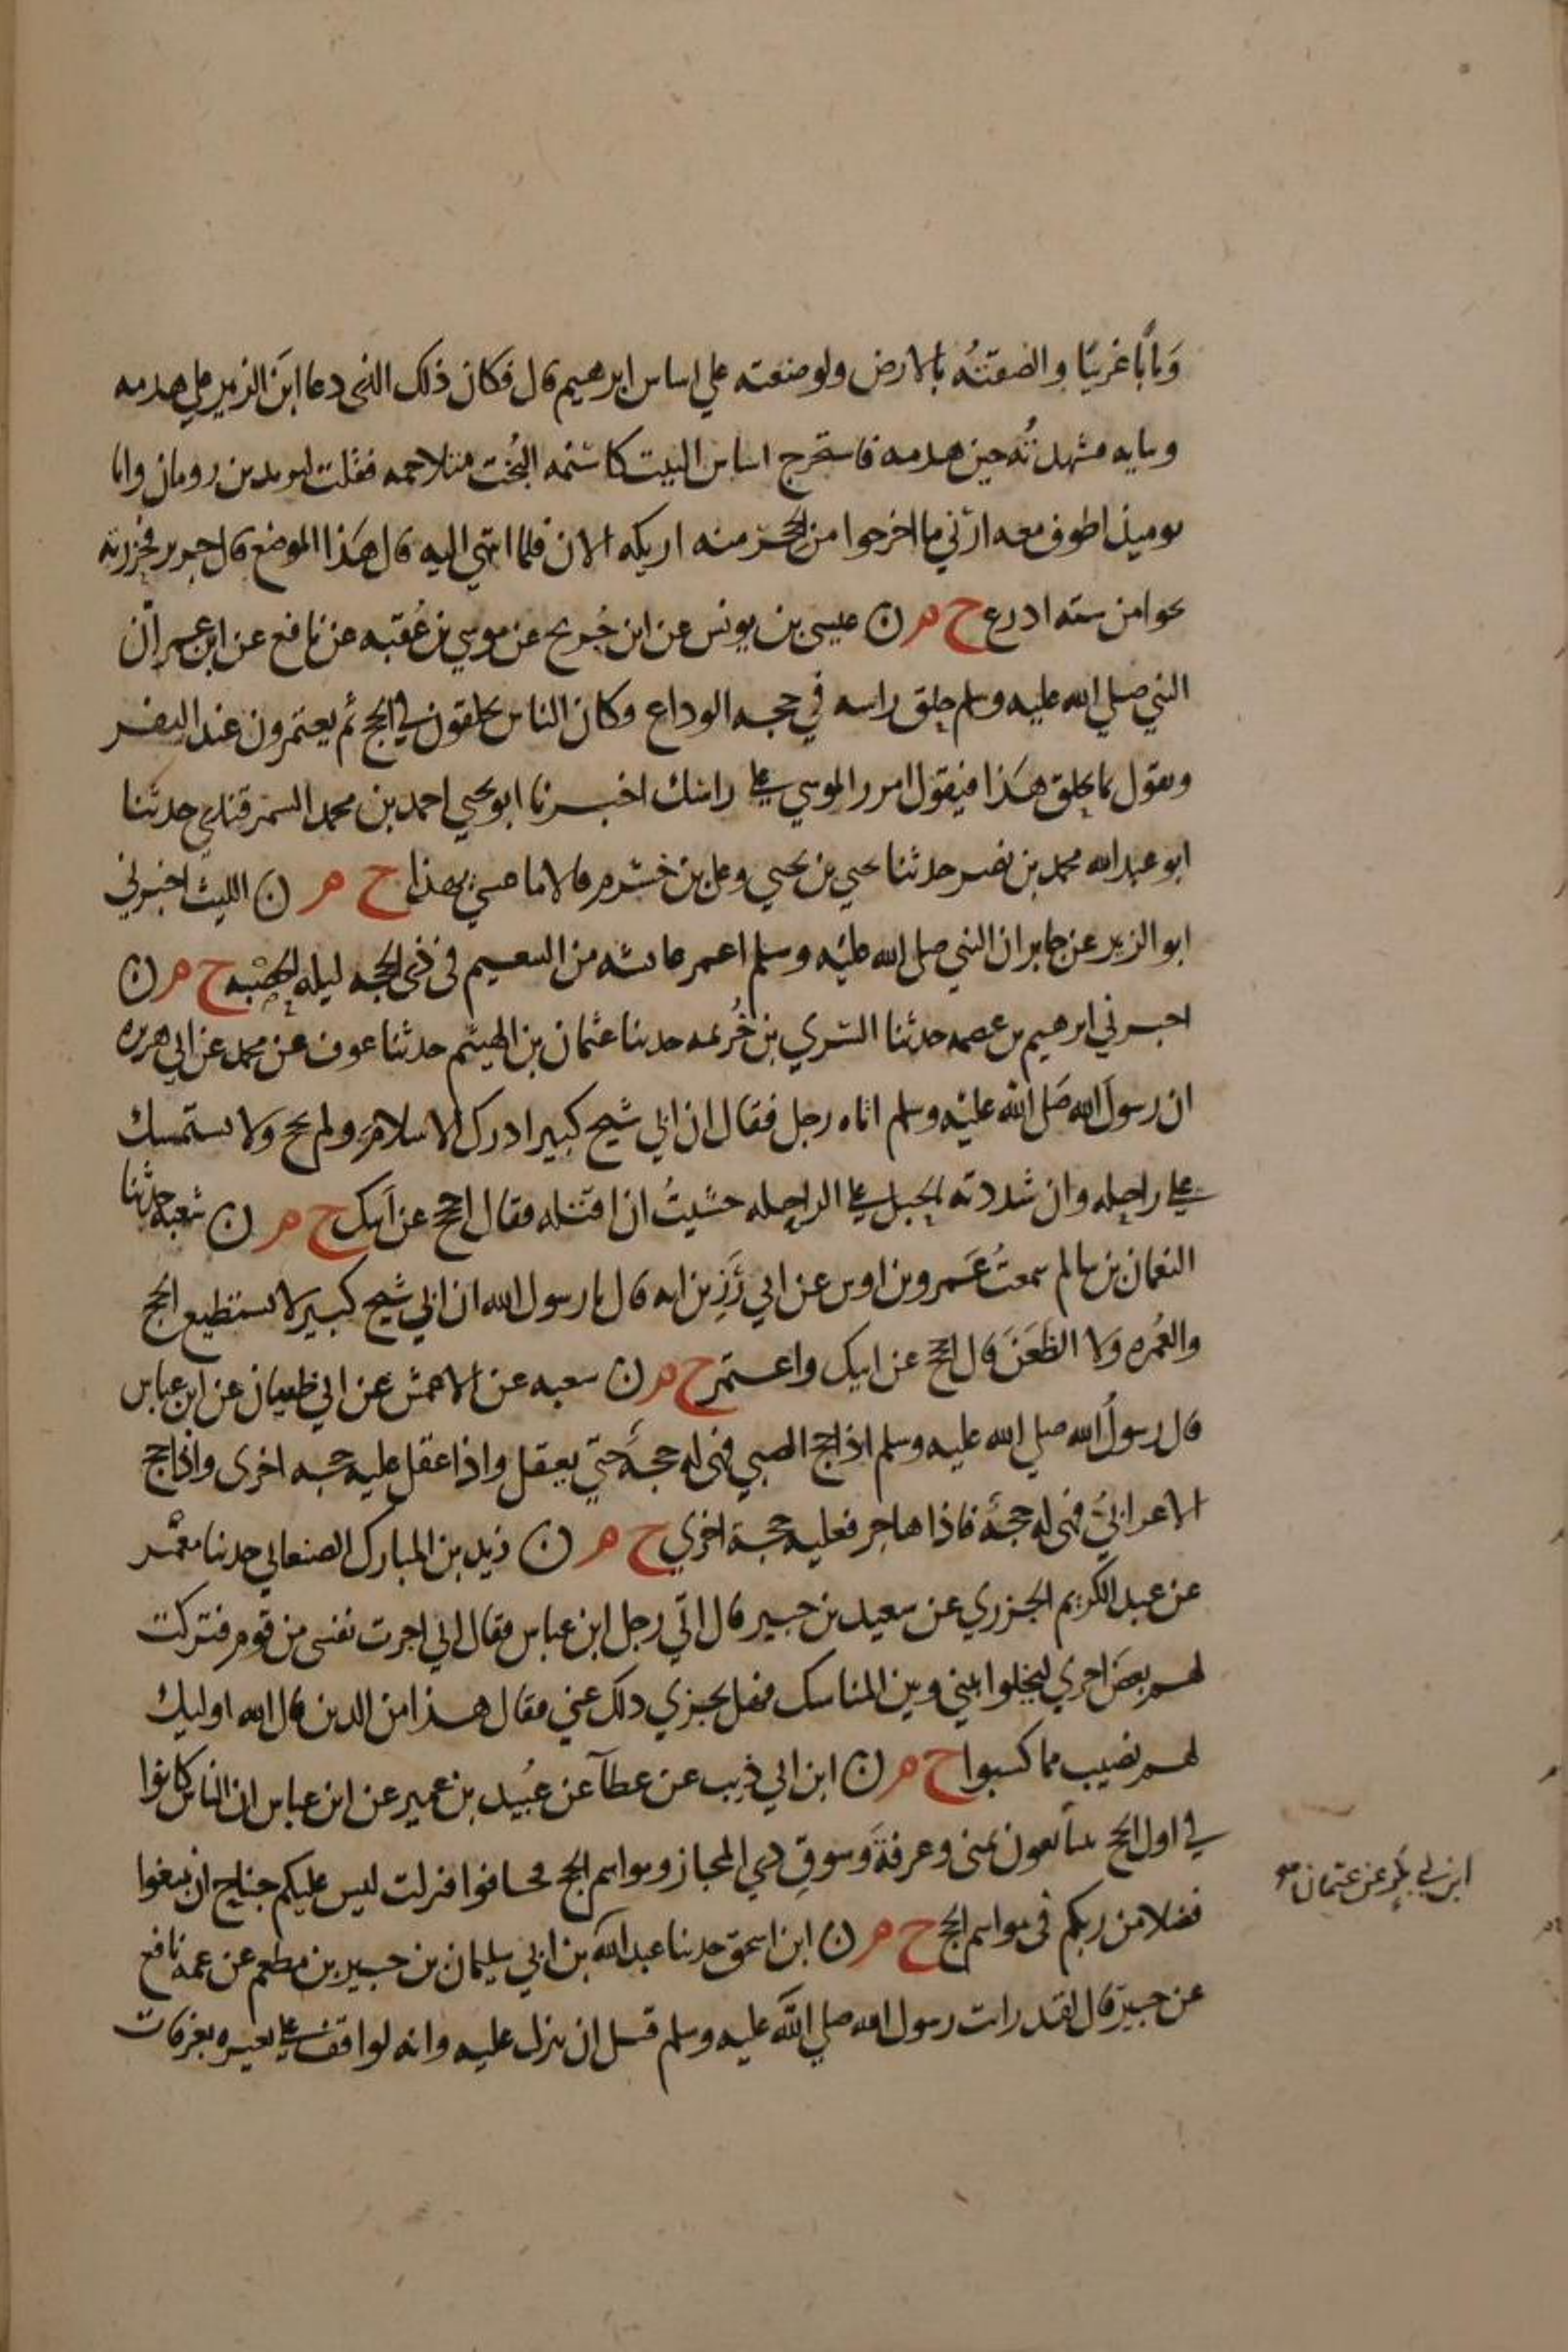 وبابا غربيا والصقته بالارض ولوضعته علي اساس ابرهيم قال فكان ذلك الذي دعا ابن الزبير علي هدمه
وبنايه فشهدته حين هدمه فاستخرج اساس البيت كاسنمه البخت متلاحمه فقلت ليزيد بن رومان وانا
يوميذ اطوف معه ارني ما اخرجوا من الحجر منه اريكه الان فلما انتهي اليه قال هذا الموضع قال جرير فحزرته
نحوا من سته اذرع ح م ن عيسى بن يونس عن ابن جريج عن موسي بن عقبه عن نافع عن ابن عمر ان
النبي صلي الله عليه وسلم حلق راسه في حجه الوداع وكان الناس يحلقون في الحج ثم يعتمرون عند النفر
ويقول ما يحلق هذا فيقول امرر الموسي علي راسك اخبرنا ابو يحيي احمد بن محمد السمرقندي حدثنا
ابو عبد الله محمد بن نصر حدثنا يحيي بن يحيي وعلي بن خشرم قالا انا عيسي بهذا ح م ن الليث اخبرني
ابو الزبير عن جابر ان النبي صلى الله عليه وسلم اعمر عايشه من التنعيم في ذي الحجه ليله الحصبه ح م ن
اخبرني ابرهيم بن عصمه حدثنا السري بن خزيمه حدثنا عثمان بن الهيثم حدثنا عوف عن محمد عن ابي هريره
ان رسول الله صلى الله عليه وسلم اتاه رجل فقال ان ابي شيخ كبير ادرك الاسلام ولم يحج ولا يستمسك
علي راحله وان شددته بالحبل علي الراحله خشيت ان اقتله فقال احجج عن ابيك ح م ن شعبه حدثنا
النعمان بن سالم سمعت عمرو بن اوس عن ابي رزين انه قال يا رسول الله ان ابي شيخ كبير لا يستطيع الحج
والعمره ولا الظعن قال احجج عن ابيك واعتمر ح م ن شعبه عن الاعمش عن ابي ظبيان عن ابن عباس
قال رسول الله صلي الله عليه وسلم اذا حج الصبي فهى له حجه حتي يعقل واذا عقل عليه حجه اخرى واذا حج
الاعرابي فهى له حجه فاذا هاجر فعليه حجة اخري ح م ن زيد بن المبارك الصنعاني حدثنا معمر
عن عبد الكريم الجزري عن سعيد بن جبير قال اتي رجل ابن عباس فقال اني اجرت نفسى من قوم فتركت
لهم بعض اجري ليخلوا بيني وبين المناسك فهل يجزي ذلك عني فقال هذا من الذين قال الله اوليك
لهم نصيب مما كسبوا ح م ن ابن ابي ذيب عن عطآ عن عبيد بن عمير عن ابن عباس ان الناس كانوا
في اول الحج يتبايعون بمنى وعرفة وسوق ذي المجاز ومواسم الحج فخافوا فنزلت ليس عليكم جناح ان تبتغوا
فضلا من ربكم في مواسم الحج ح م ن ابن اسحق حدثنا عبد الله بن ابي سليمان بن جبير بن مطعم عن عمه نافع
ابن ابي بكر عن عثمان
عن جبير قال لقد رايت رسول الله صلي الله عليه وسلم قبل ان ينزل عليه وانه لواقف علي بعيره بعرفات